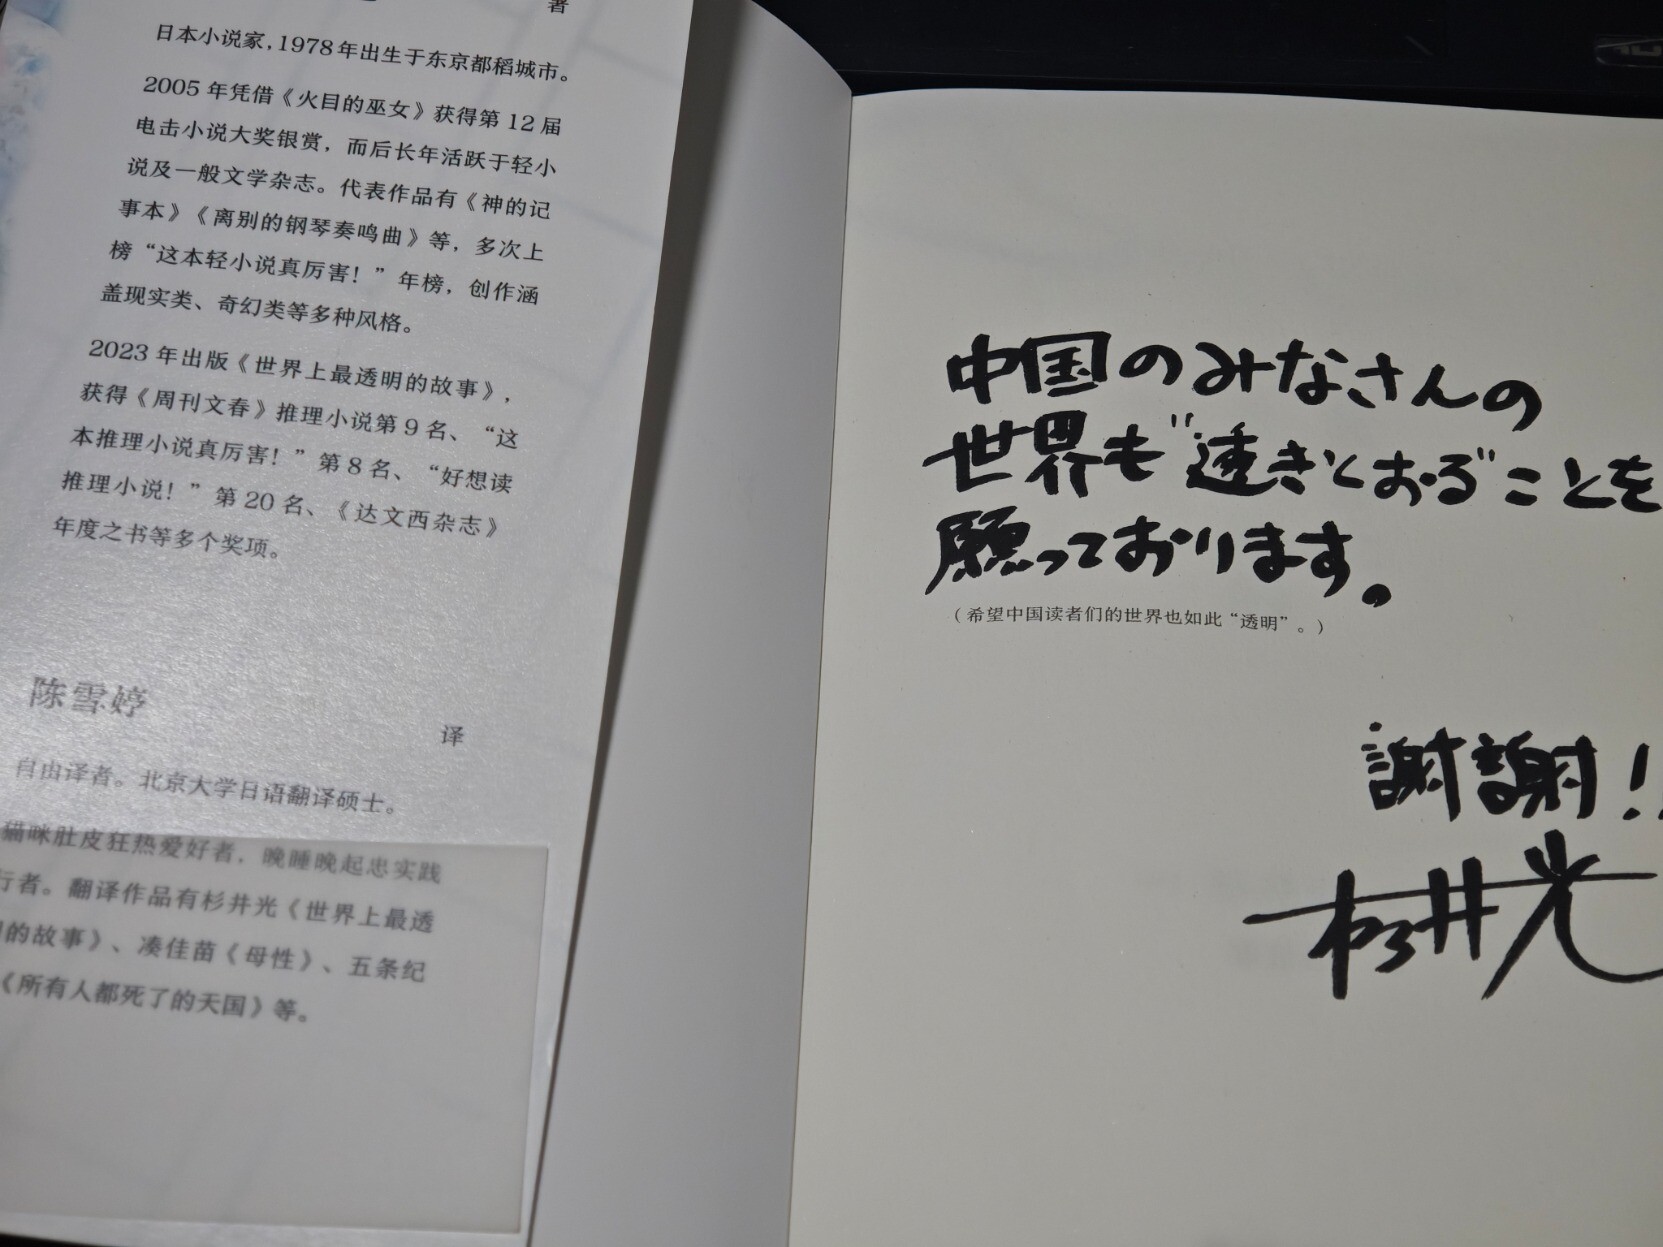 著
日本小说家,1978年出生于东京都稻城市。
2005年凭借《火目的巫女》获得第12届
电击小说大奖银赏，而后长年活跃于轻小
说及一般文学杂志。代表作品有《神的记
事本》《离别的钢琴奏鸣曲》等，多次上
榜“这本轻小说真厉害！”年榜，创作涵
盖现实类、奇幻类等多种风格。
2023年出版《世界上最透明的故事》，
获得《周刊文春》推理小说第9名、“这
本推理小说真厉害！”第8名、“好想读
推理小说！”第20名、《达文西杂志》
年度之书等多个奖项。
陈雪婷
译
自由译者。北京大学日语翻译硕士。
猫咪肚皮狂热爱好者，晚睡晚起忠实践
行者。翻译作品有杉井光《世界上最透
的故事》、凑佳苗《母性》、五条纪
《所有人都死了的天国》等。
中国のみなさんの
世界も"透きとおる"ことを
願っております。
（希望中国读者们的世界也如此“透明”。）
謝謝！
杉井光